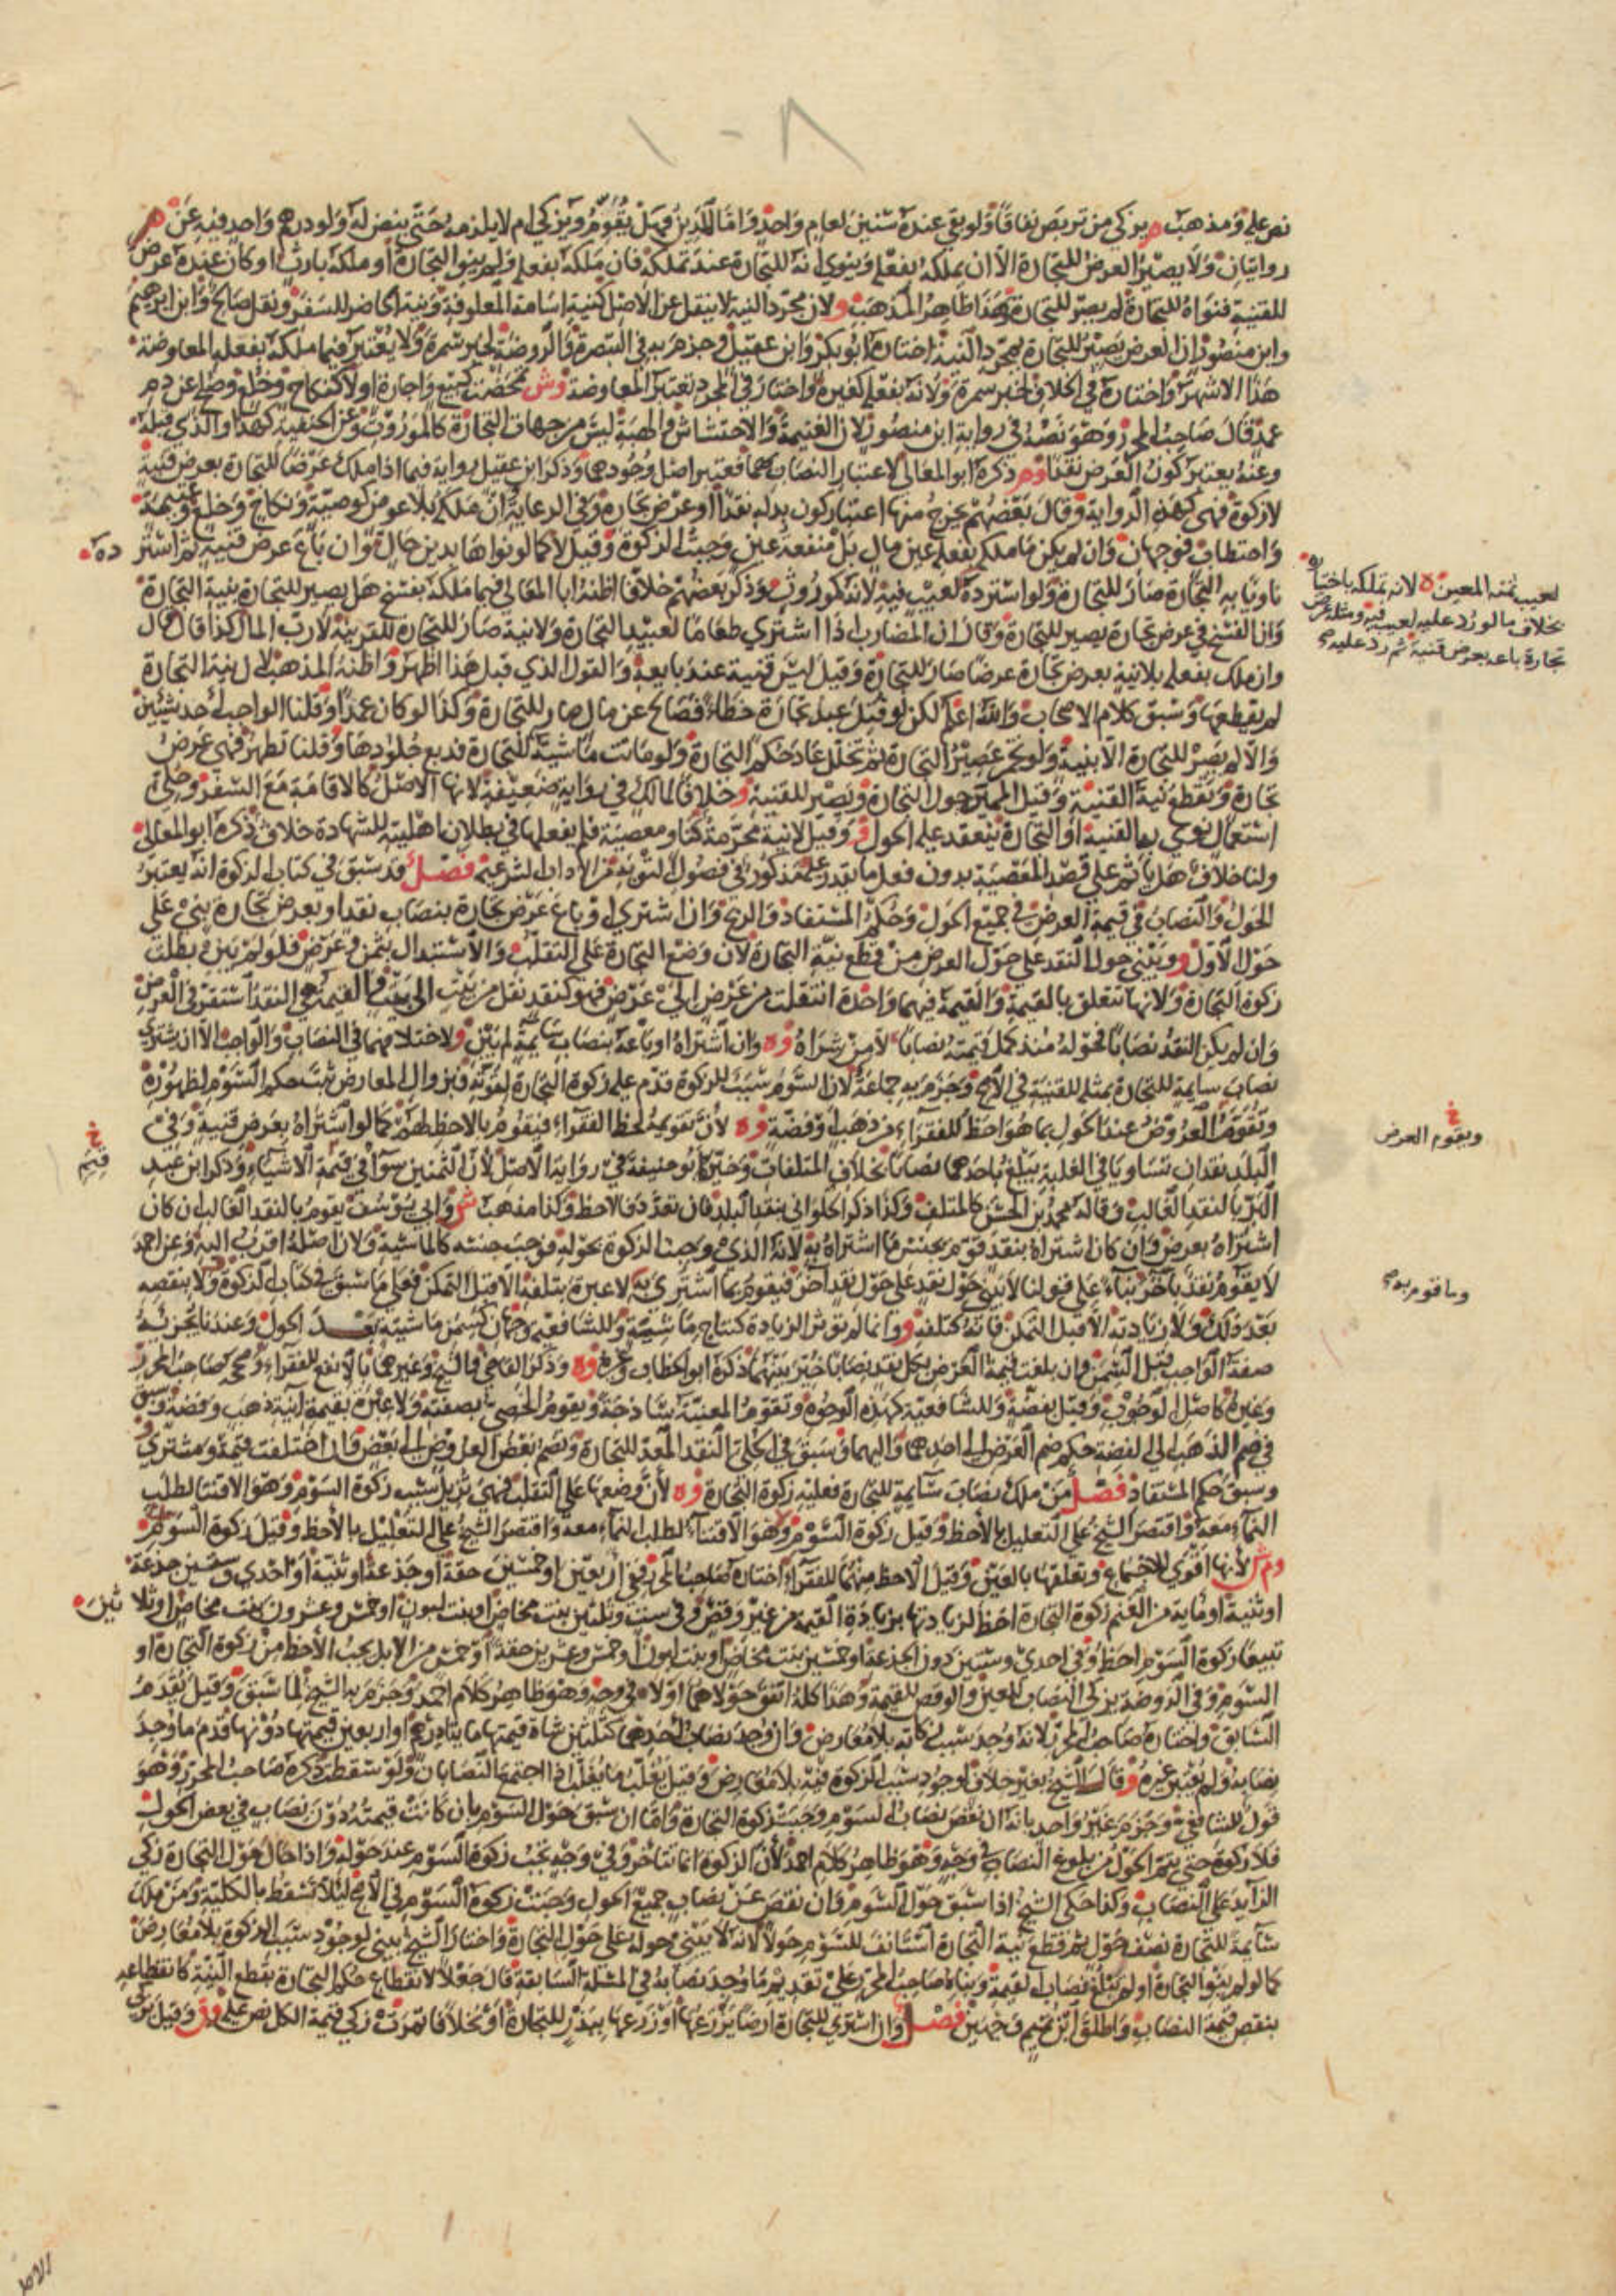 ١٠٨
نص عليه ومذهب م يزكى من تربص نفاقا ولو بقي عنده سنين لعام واحد واما المدين فهل يقوم ويزكى ام لا يلزمه حتى ينض له ولو درهم واحد فيه عن م
روايتان ولا يصير العرض للتجارة الا ان يملكه بفعله وينوي انه للتجارة عند تملكه فان ملكه بفعله ولم ينو التجارة او ملكه بارث او كان عنده عرض
للقنية فنواه للتجارة لم يصر للتجارة هذا ظاهر المذهب و لان مجرد النية لا ينقل عن الاصل كنية اسامة المعلوفة ونية الحاضر للسفر ونقل صالح وابن ابرهيم
وابن منصور ان العرض يصير للتجارة بمجرد النية اختاره ابو بكر وابن عقيل وجزم به في التبصرة والروضة لخبر سمرة ولا يعتبر فيما ملكه بفعله المعاوضة
هذا الاشهر واختاره في الخلاف لخبر سمرة ولانه بفعله كغيره واختار في المجرد تعتبر المعاوضة وش تمحضت كبيع واجارة او لا كنكاح وخلع وصلح عن دم
عمد قال صاحب المحرر وهو نصه في رواية ابن منصور لان الغنيمة والاحتشاش والهبة ليس من جهات التجارة كالموروث وعن الحنفية كهذا والذي قبله
وعنه يعتبر كون العرض نقدا وم ذكره ابو المعالي لاعتبار النصاب بهما فعتبر اصل وجودهما وذكر ابن عقيل رواية فيما اذا ملك عرضا للتجارة بعرض قنية
لا زكوة فهي كهذه الرواية وقال بعضهم يخرج منها اعتبار كون بدله نقدا او عرض تجارة وفي الرعاية ان ملكه بلا عوض كوصية ونكاح وخلع وغنيمة
واحتطاب فوجهان وان لم يكن ما ملكه بفعله عين مال بل منفعة عين وجبت الزكوة وقيل لا كما لو نواها بدين حال وان باع عرض قنية ثم اشتر ده
ناويا به التجارة صار للتجارة ولو استرده لعيب فيه لانه كموروث وذكر بعضهم خلافا اظنه ابا المعالي فيما ملكه بفسخ هل يصير للتجارة بنية التجارة
وان الفسخ في عرض تجارة يصير للتجارة وقال ان المضارب اذا اشترى طعاما لعبيد التجارة ولا نية صار للتجارة للقرينة لا رب المال كذا قال قال
وان ملك بفعله بلا نية بعرض تجارة عرضا صار للتجارة وقيل ليس قنية عند بايعه والقول الذي قبل هذا اظهر واظنه المذهب لان نية التجارة
لم يقطعها وسبق كلام الاصحاب والله اعلم لكن لو قتل عبد تجارة خطأ فصالح عن مال صار للتجارة وكذا لو كان عمدا وقلنا الواجب احد شيئين
والا لم يصر للتجارة الا بنية ولو تخمر عصير التجارة ثم تخلل عاد حكم التجارة ولو ماتت ماشية للتجارة فدبغ جلودها وقلنا تطهر فهي عرض
تجارة وتقطع نية القنية وقيل المميزة حول التجارة ويصير للقنية و خلافا لمالك في رواية ضعيفة لانها الاصل كالاقامة مع السفر وحلي
استعمال نوى به القنية او التجارة ينعقد عليه الحول ق وقيل لا نية محرمة كناو معصية فلم يفعلها في بطلان اهليته للشهادة خلاف ذكره ابو المعالي
ولنا خلاف هل ياثم على قصد المعصية بدون فعل ما يقدر عليه مذكور في فصول التوبة من الاداب الشرعية فصل قد سبق في كتاب الزكوة انه يعتبر
الحول والنصاب في قيمة العرض في جميع الحول وحكم المستفاد والربح وان اشترى او باع عرض تجارة بنصاب نقد او بعرض تجارة بنى على
حول الاول و ويبنى حول النقد على حول العرض من قطع نية التجارة لان وضع التجارة على التقلب والاستبدال بثمن وعرض فلو لم يبن بطلت
زكوة التجارة ولانها تتعلق بالقيمة والقيمة فيهما واحدة انتقلت من عرض الى عرض فهو كنقد نقل من بيت الى بيت والقيمة هي النقد استتر في العرض
وان لم يكن النقد نصابا فحوله منذ كمل قيمته نصابا لا من شراه وه وان اشتراه او باعه بنصاب سايمة لم يبن و لاختلافهما في النصاب والواجب الا ان يشتري
نصاب سايمة للتجارة بمثله للقنية في الاصح وجزم به جماعة لان السوم سبب للزكوة قدم عليه زكوة التجارة لقوته فبزوال المعارض ثبت حكم السوم لظهوره
وتقوم العروض عند الحول بما هو احظ للفقراء من ذهب او فضة وه لان تقويمه لحظ الفقراء فيقوم بالاحظ لهم كما لو اشتراه بعرض قنية وفي
البلد نقدان تساويا في الغلبة يبلغ باحدهما نصابا بخلاف المتلفات وخير ابو حنيفة في رواية الاصل لان الثمنين سوا في قيمة الاشياء وذكر ابن عبد
البر بالنقد الغالب وقاله محمد بن الحسن كالمتلف وكذا ذكر الحلواني بنقد البلد فان تعدد فالاحظ وكذا مذهب ش وابي يوسف يقوم بالنقد الغالب ان كان
اشتراه بعرض وان كان اشتراه بنقد قوم بجنس ما اشتراه به لانه الذي وجبت الزكوة بحوله فوجب جنسه كالماشية ولان اصله اقرب اليه وعن احمد
لا يقوم نقد بآخر بناء على قولنا لا يبنى حول نقد على حول نقد اخر فيقوم بما اشتري به ولا عبرة بتلفه الا قبل التمكن فعلى ما سبق في كتاب الزكوة ولا بنقصه
بعد ذلك ولا زيادته الا قبل التمكن فانه كتلفه و وانما لم تؤثر الزيادة كنتاج ماشية وللشافعية وجهان كسمن ماشيته بعد الحول وعندنا يجزئه
صفة الواجب قبل السمن وان بلغت قيمة العرض بكل نقد نصابا خير بينهما ذكره ابو الخطاب وغيره وه وذكر القاضي والشيخ وغيرهما بالانفع للفقراء وصححه صاحب المحرر
وغيره كاصل الوجوب وقيل بفضة وللشافعية كهذه الوجوه وتقوم المغنية ساذجة ويقوم الخصي بصفته ولا عبرة بقيمة آنية ذهب وفضة وسبق
في ضم الذهب الى الفضة حكم ضم العرض الى احدهما واليهما وسبق في الحلي النقد المعد للتجارة ويضم بعض العروض الى بعض وان اختلفت قيمة ومشترى
وسبق حكم المستفاد فصل من ملك نصاب سايمة للتجارة فعليه زكوة التجارة وه لان وضعها على التقلب فهي تزيل سبب زكوة السوم وهو الاقتنا لطلب
النماء معه واقتصر الشيخ على التعليل بالاحظ وقيل زكوة السوم
وم ش لانها اقوى للاجماع وتعلقها بالعين وقيل الاحظ منهما للفقراء اختاره صاحب المحرر ففي اربعين او خمسين حقة او جذعة او ثنية او احدى وستين جذعة
او ثنية او ماية من الغنم زكوة التجارة احظ لزيادتها بزيادة القيمة من غير وقص وفي ست وثلثين بنت مخاض او بنت لبون او خمس وعشرون بنت مخاض او ثلا ثين
تبيعا زكوة السوم احظ وفي احدى وستين دون الجذعة او خمسين بنت مخاض او بنت لبون او خمس وعشرين حقة او خمس من الابل يجب الاحظ من زكوة التجارة او
السوم وفي الروضة يزكى النصاب للعين والوقص للقيمة وهذا كله اتفق حولاهما او لا في وجه وهو ظاهر كلام احمد وجزم به الشيخ لما سبق وقيل يقدم
السابق واختاره صاحب المحرر لانه وجد سبب زكاته بلا معارض وان وجد نصاب احدهما كثلثين شاة قيمتها مايتا درهم او اربعين قيمتها دونها قدم ما وجد
نصابه ولم يعتبر غيره و وقال الشيخ بغير خلاف لوجود سبب الزكوة فيه بلا معارض وقيل يغلب ما يغلب اذا اجتمع النصابان ولو سقطت ذكره صاحب المحرر وهو
قول للشافعي وجزم غير واحد بانه ان نقص نصاب السوم وجبت زكوة التجارة واما ان سبق حول السوم بان كانت قيمته دون نصاب في بعض الحول
فلا زكوة حتى يتم الحول من بلوغ النصاب في وجه وهو ظاهر كلام احمد لان الزكوة انما تتاخر وفي وجه تجب زكوة السوم عند حوله واذا حال حول التجارة زكى
الزايد على النصاب وكذا حكى الشيخ اذا سبق حول السوم وان نقص عن نصاب جميع الحول وجبت زكوة السوم في الاصح لئلا تسقط بالكلية ومن ملك
سايمة للتجارة نصف حول ثم قطع نية التجارة استانف للسوم حولا لانه لا يبنى حوله على حول التجارة واختار الشيخ يبنى لوجود سبب الزكوة بلا معارض
كما لو لم ينو التجارة او لم تبلغ نصاب القيمة وبناه صاحب المحرر على تقديم ما وجد نصابه في المسئلة السابقة قال جعلا لانقطاع حكم التجارة بقطع النية كانقطاعه
بنقص قيمة النصاب واطلق ابن تميم وجهين فصل وان اشترى للتجارة ارضا يزرعها او زرعها ببذر للتجارة او نخلا فاثمرت زكى قيمة الكل نص عليه وق وقيل يزكى
لعيب ثمنه المعين ه لانه تملكه باختياره
بخلاف ما لو رد عليه لعيب فيه ومثله عرض
تجارة باعه بعرض قنية ثم رد عليه
خ
ويقوم العرض
خ
قيم
وما قوم به
الاصل